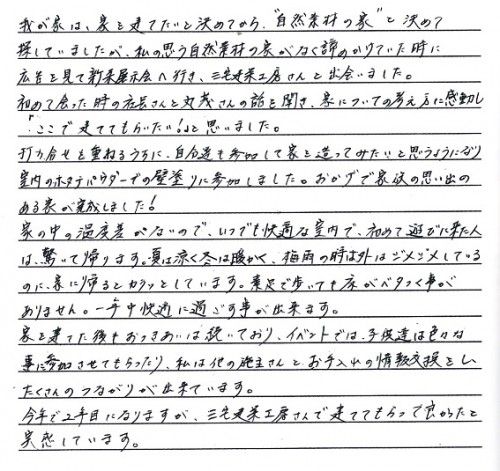 我が家は、家を建てたいと決めてから、"自然素材の家"と決めて
探していましたが、私の思う自然素材の家がなく諦めかけていた時に
広告を見て新築展示会へ行き、三宅建築工房さんと出会いました。
初めて会った時の社長さんと丸茂さんの話を聞き、家についての考え方に感動し
「ここで建ててもらいたい!」と思いました。
打ち合せを重ねるうちに、自分達も参加して家を造ってみたいと思うようになり
室内のホタテパウダーでの壁塗りに参加しました。おかげで家族の思い出の
ある家が完成しました!
家の中の温度差がないので、いつでも快適な室内で、初めて遊びに来た人
は、驚いて帰ります。夏は涼く冬は暖かく、梅雨の時は外はジメジメしている
のに、家に帰るとカラッとしています。素足で歩いても床がベタつく事が
ありません。一年中快適に過ごす事が出来ます。
家を建てた後もおつきあいは続いており、イベントでは、子供達は色々な
事に参加させてもらったり、私は他の施主さんとお手入れの情報交換をし、
たくさんのつながりが出来ています。
今年で2年目になりますが、三宅建築工房さんで建ててもらって良かったと
実感しています。